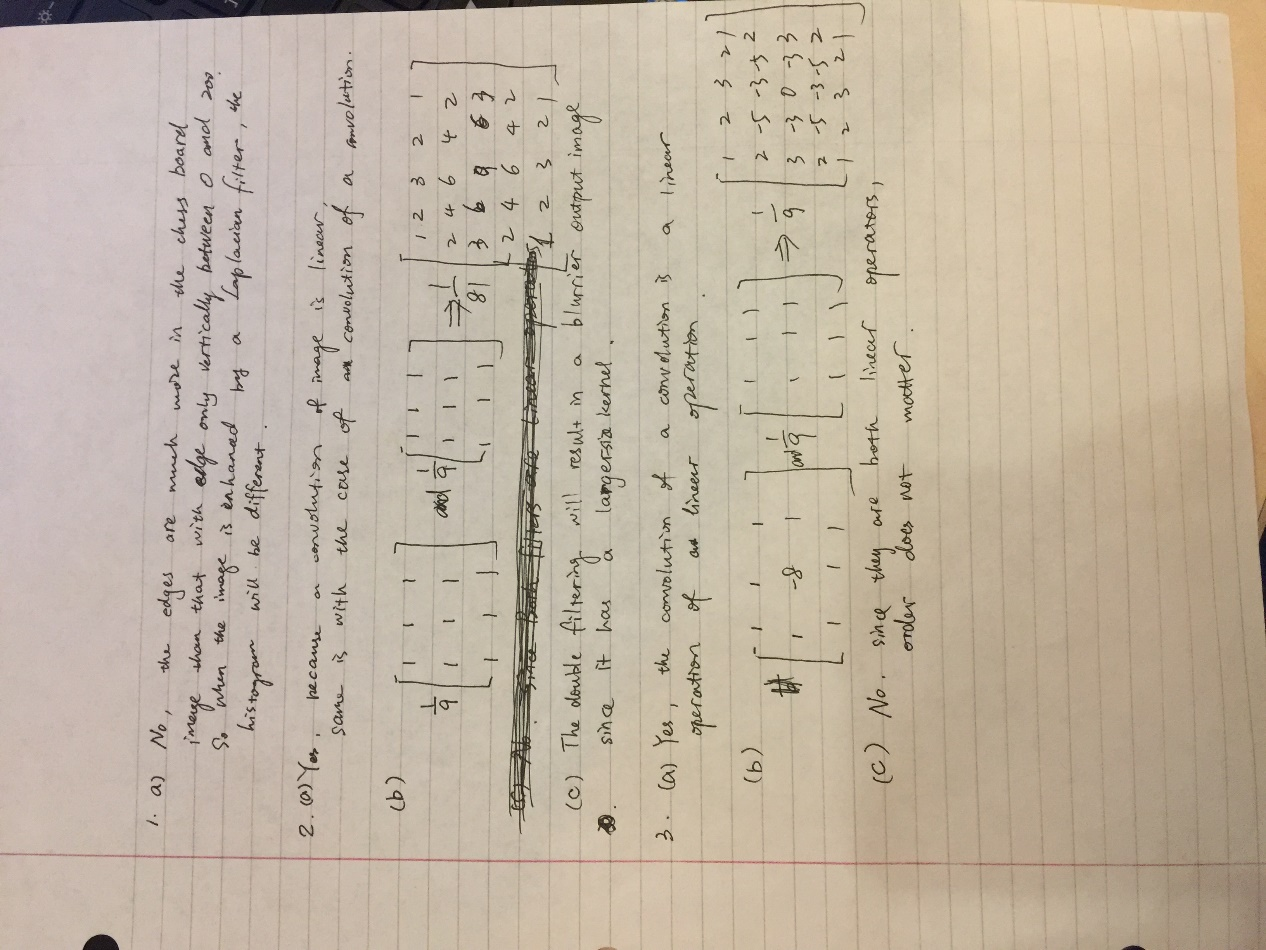 1. a) No, the edges are much more in the chess board
image than that with edge only vertically between 0 and 200.
So when the image is enhanced by a Laplacian filter, the
histogram will be different.
2. (a) Yes, because a convolution of image is linear,
same is with the case of convolution of a convolution.
(b)
1/9 [ 1 1 1
1 1 1
1 1 1 ] and 1/9 [ 1 1 1
1 1 1
1 1 1 ] ⇒ 1/81 [ 1 2 3 2 1
2 4 6 4 2
3 6 9 6 3
2 4 6 4 2
1 2 3 2 1 ]
(c) No. since Both filters are linear operators
(c) The double filtering will result in a blurrier output image
since it has a larger size kernel.
3. (a) Yes, the convolution of a convolution is a linear
operation of linear operation.
(b)
[ 1 1 1
1 -8 1
1 1 1 ] and 1/9 [ 1 1 1
1 1 1
1 1 1 ] ⇒ 1/9 [ 1 2 3 2 1
2 -5 -3 -5 2
3 -3 0 -3 3
2 -5 -3 -5 2
1 2 3 2 1 ]
(c) No. since they are both linear operators,
order does not matter.